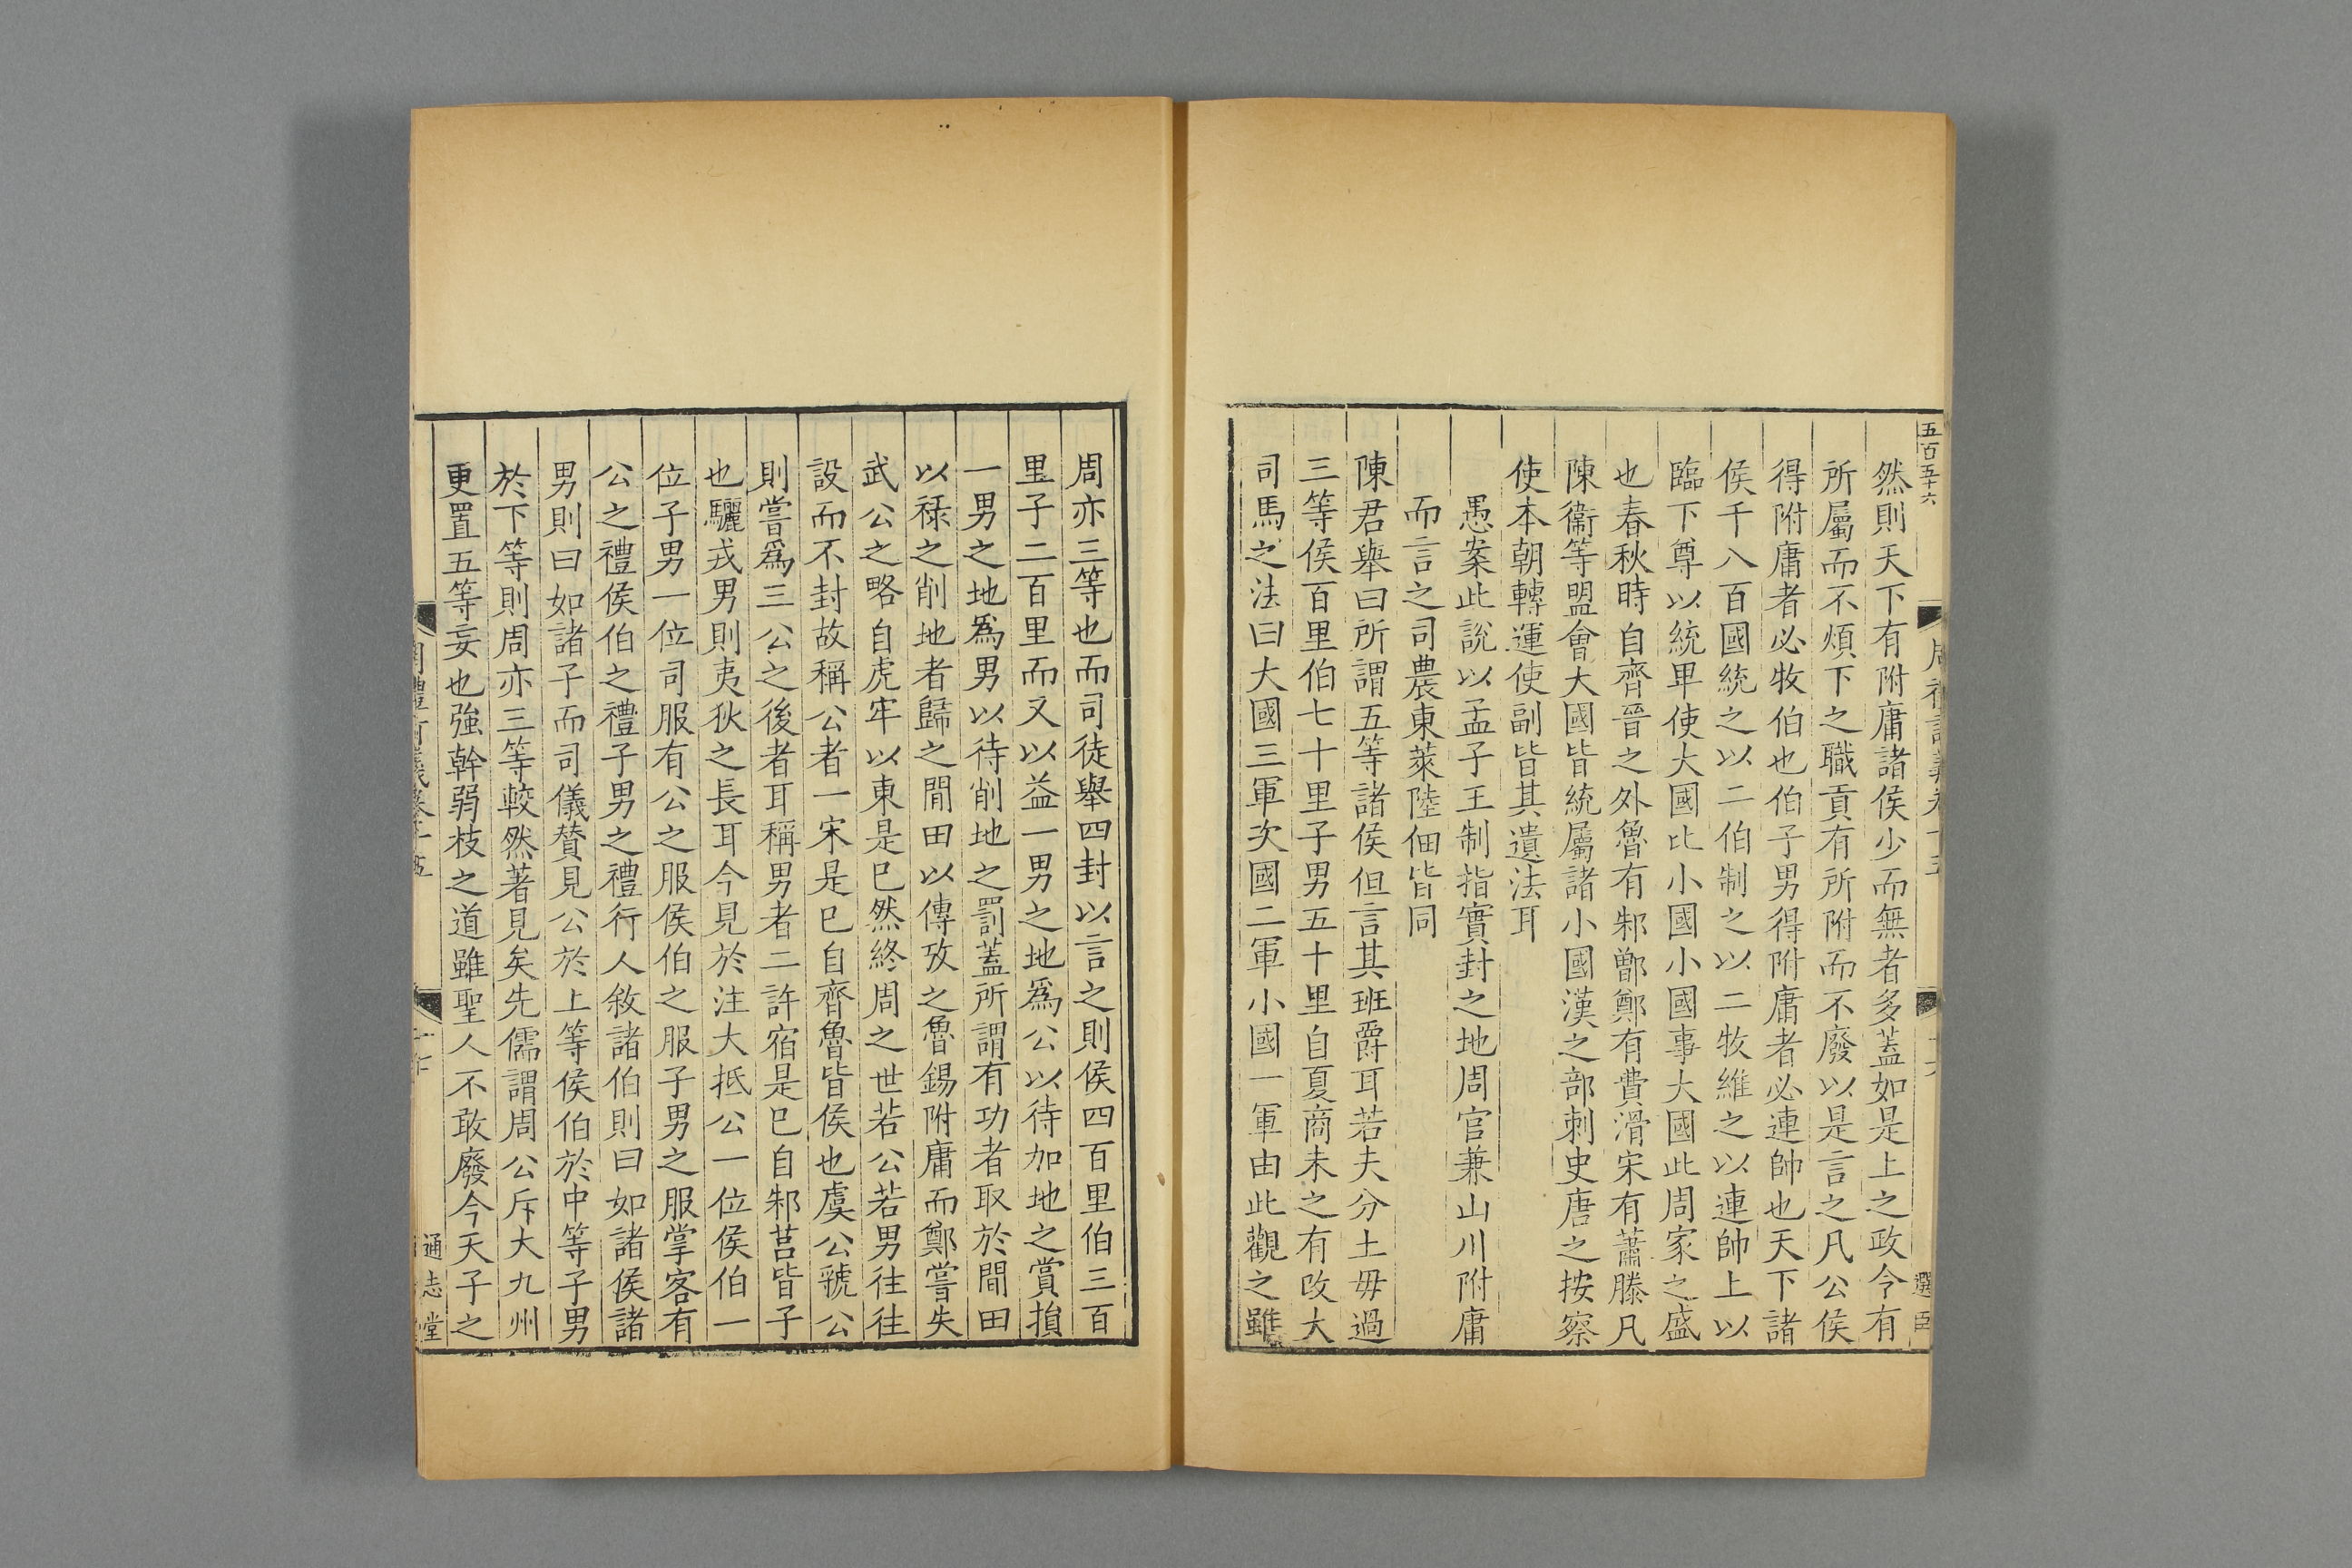 五百五十六
然則天下有附庸諸侯少而無者多蓋如是上之政令有
所屬而不煩下之職貢有所附而不廢以是言之凡公侯
得附庸者必牧伯也伯子男得附庸者必連帥也天下諸
侯千八百國統之以二伯制之以二牧維之以連帥上以
臨下尊以統卑使大國比小國小國事大國此周家之盛
也春秋時自齊晉之外魯有邾鄫鄭有費滑宋有蕭滕凡
陳衞等盟會大國皆統屬諸小國漢之部刺史唐之按察
使本朝轉運使副皆其遺法耳
愚案此說以孟子王制指實封之地周官兼山川附庸
而言之司農東萊陸佃皆同
陳君舉曰所謂五等諸侯但言其班爵耳若夫分土毋過
三等侯百里伯七十里子男五十里自夏商未之有改大
司馬之法曰大國三軍次國二軍小國一軍由此觀之雖
周亦三等也而司徒舉四封以言之則侯四百里伯三百
里子二百里而又以益一男之地爲公以待加地之賞損
一男之地爲男以待削地之罰蓋所謂有功者取於閒田
以祿之削地者歸之閒田以傳攷之魯錫附庸而鄭嘗失
武公之略自虎牢以東是已然終周之世若公若男往往
設而不封故稱公者一宋是已自齊魯皆侯也虞公虢公
則嘗爲三公之後者耳稱男者二許宿是已自邾莒皆子
也驪戎男則夷狄之長耳今見於注大抵公一位侯伯一
位子男一位司服有公之服侯伯之服子男之服掌客有
公之禮侯伯之禮子男之禮行人敘諸伯則曰如諸侯諸
男則曰如諸子而司儀賛見公於上等侯伯於中等子男
於下等則周亦三等較然著見矣先儒謂周公斥大九州
更置五等妄也強幹弱枝之道雖聖人不敢廢今天子之
通志堂